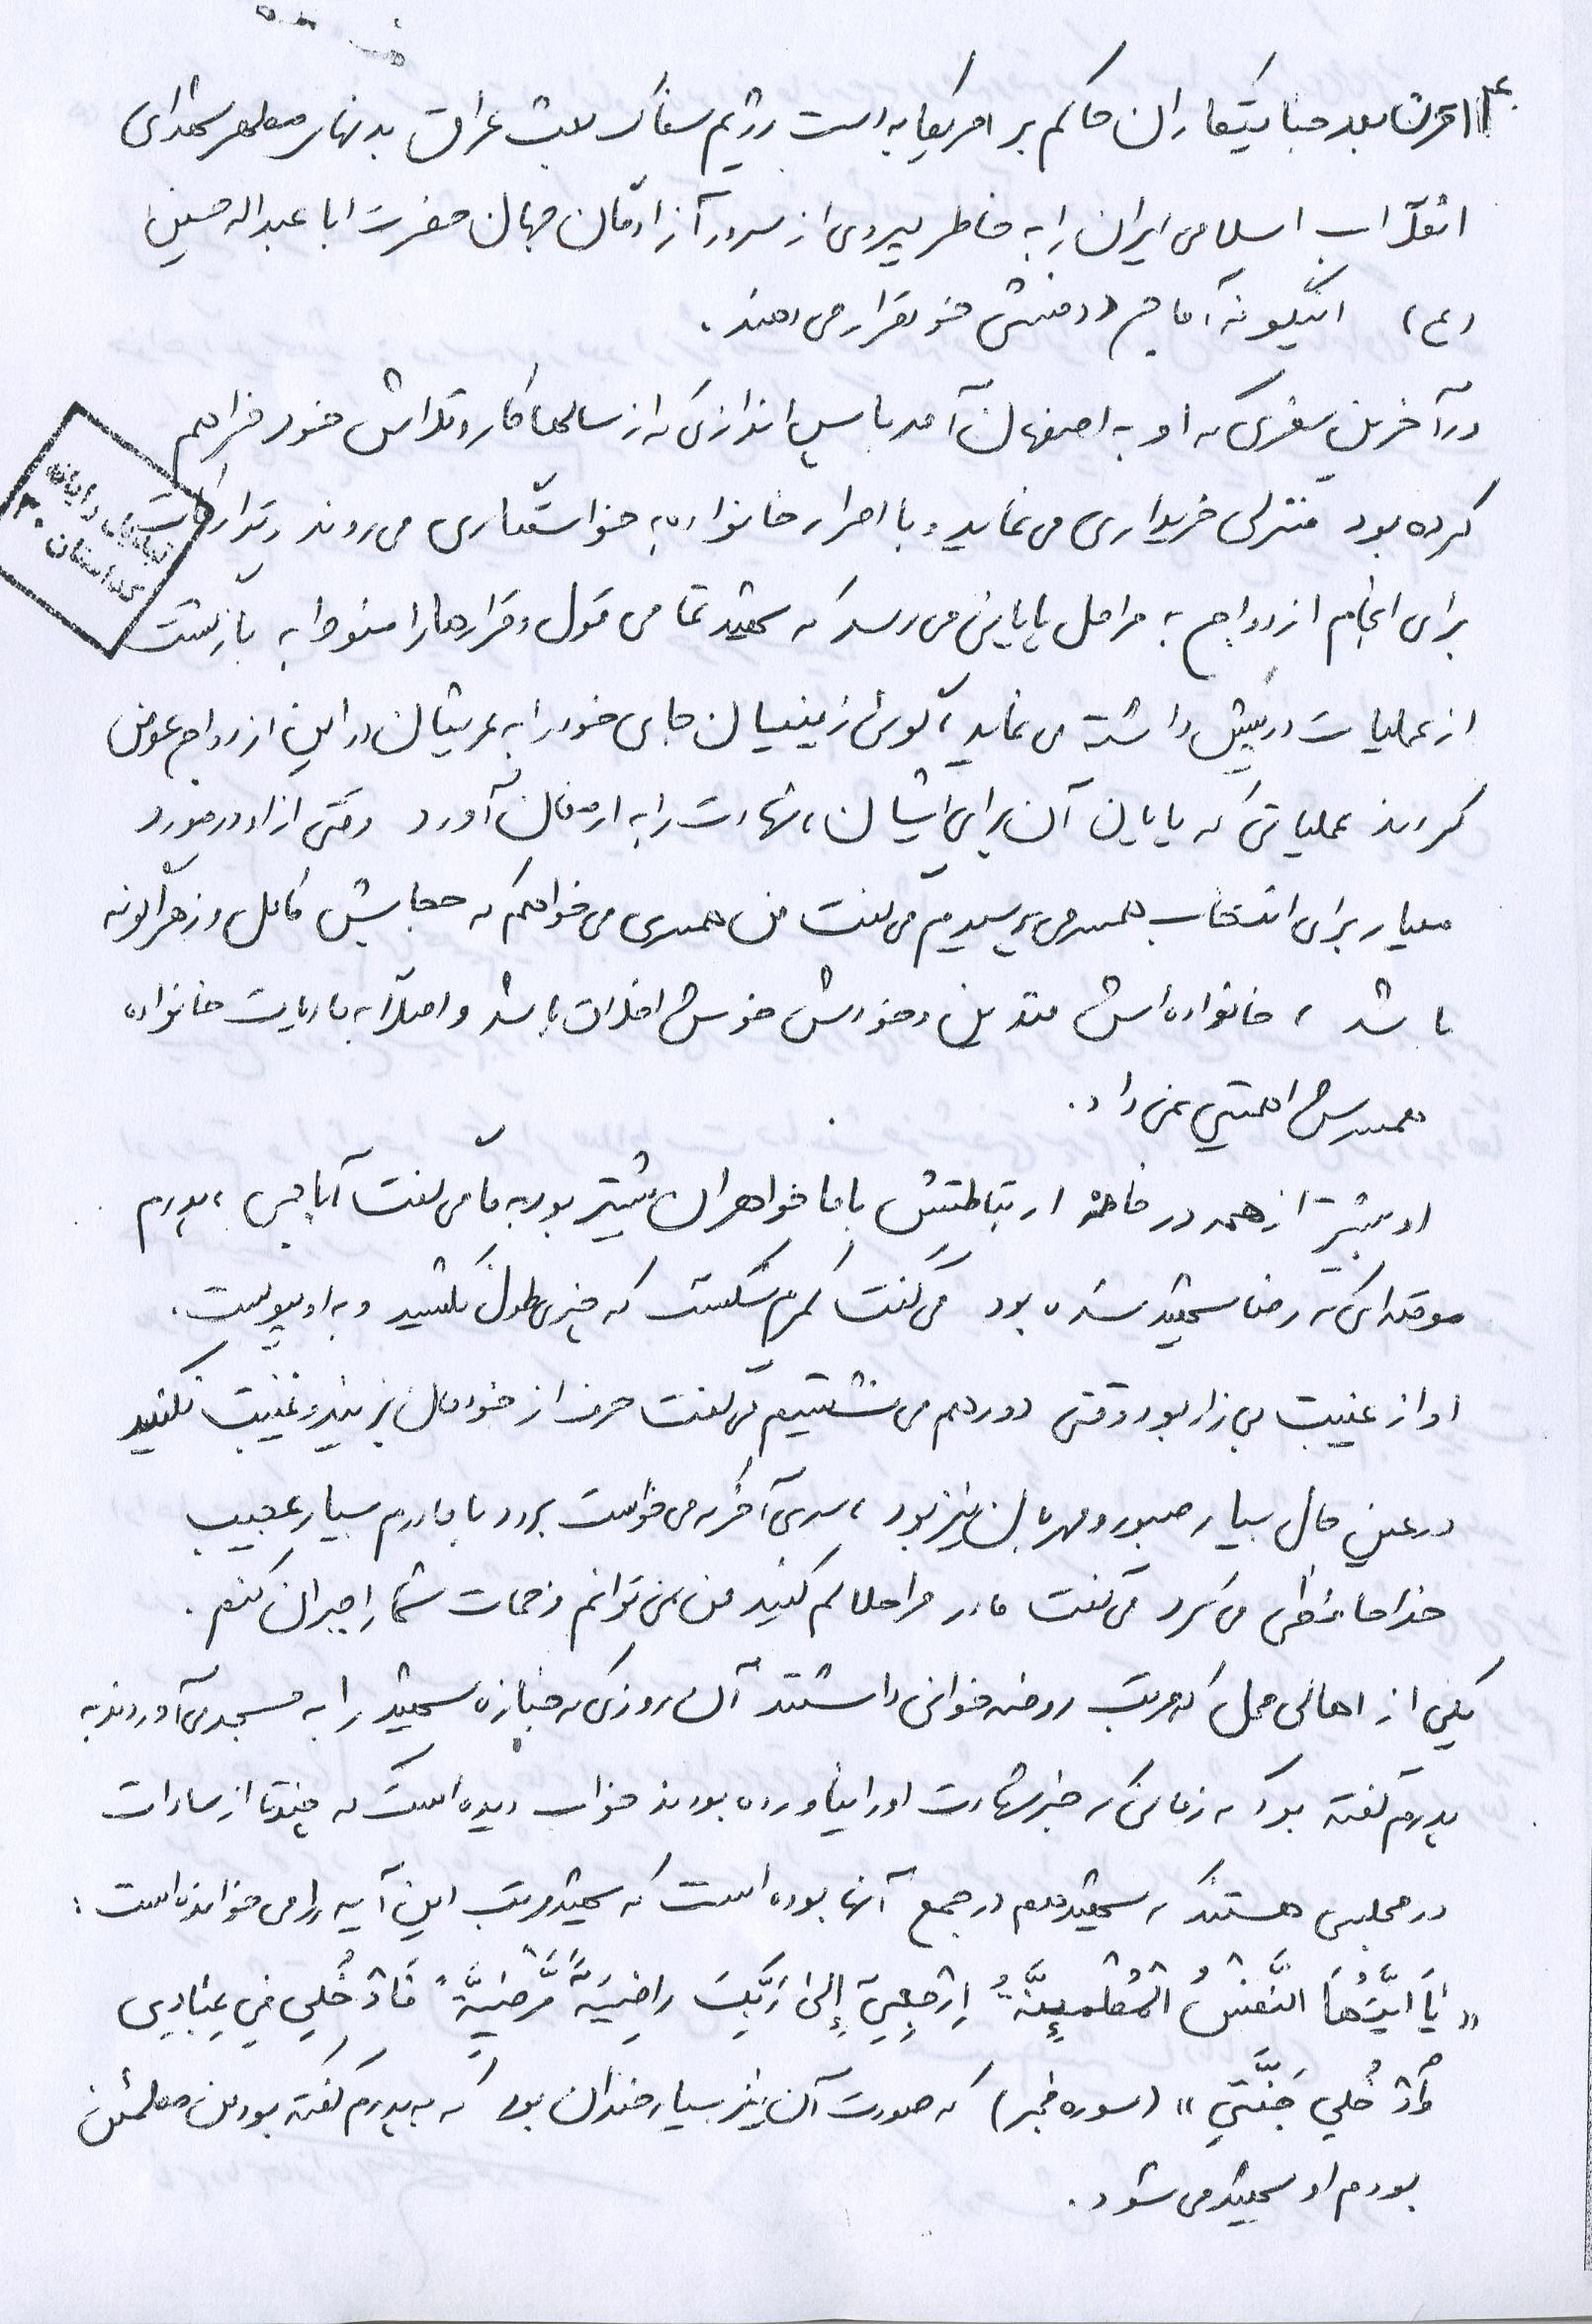 ۱۴ قرن بعد جنایتکاران حاکم بر امریکا به دست رژیم سفاک بعث عراق بدنهای مطهر شهدای
انقلاب اسلامی ایران را به خاطر پیروی از سرور آزادگان جهان حضرت ابا عبداله حسین
(ع) اینگونه آماج ددمنشی خود قرار می دهند.
در آخرین سفری که او به اصفهان آمد با پس اندازی که از سالها کار و تلاش خود فراهم
کرده بود منزلی خریداری می نماید و با اصرار خانواده به خواستگاری می روند و تدارکات
برای انجام ازدواج به مراحل پایانی می رسد که شهید تمامی قول و قرارها را منوط به بازگشت
از عملیات در پیش داشته می نماید، گوئی زمینیان جای خود را به عرشیان در این ازدواج عوض
کردند عملیاتی که پایان آن برای ایشان، شهادت را به ارمغان آورد وقتی از او در مورد
معیار برای انتخاب همسر می پرسیدیم می گفت من همسری می خواهم که حجابش کامل و زهراگونه
باشد، خانواده اش متدین و خودش خوش اخلاق باشد و اصلاً به مادیات خانواده
همسرش اهمیتی نمی داد.
او بیشتر از همه در خانه ارتباطش با ما خواهران بیشتر بود به ما می گفت آباجی، پدرم
موقعه ای که رضا شهید شده بود می گفت کمرم شکست که چیزی طول نکشید و به او پیوست.
او از غیبت بی زار بود وقتی دور هم می نشستیم می گفت حرف از خودمان بزنید و غیبت نکنید
در عین حال بسیار صبور و مهربان نیز بود، سری آخر که می خواست برود با مادرم بسیار عجیب
خداحافظی می کرد می گفت مادر مرا حلالم کنید من نمی توانم زحمات شما را جبران کنم.
یکی از اهالی محل که مرتب روضه خوانی داشتند آن روزی که جنازه شهید را به مسجد می آوردند به
پدرم گفته بود که زمانی که خبر شهادت او را نیاورده بودند خواب دیده است که چندتا از سادات
در مجلس هستند که شهید هم در جمع آنها بوده است که شهید مرتب این آیه را می خوانده است:
« یَا اَیَّتُهَا النَّفْسُ الْمُطْمَئِنَّةُ اِرْجِعِی إِلیٰ رَبِّکِ راضِیَةً مَّرْضِیَّةً فَادْخُلِی فِی عِبَادِی
وَادْخُلِی جَنَّتِی » (سوره فجر) که صورت آن نیز بسیار خندان بود که به پدرم گفته بود من مطمئن
بودم او شهید می شود.
تبدیل رایانه
گلستان ۳۰